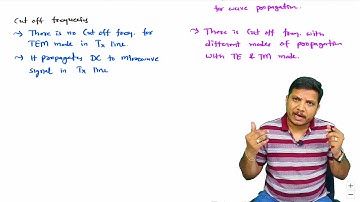 for wave propagation.
Cut off frequencies
→ There is no Cut off freq. for
TEM mode in Tx line.
→ It propagates DC to microwave
signal in Tx line
→ There is Cut off freq. with
different modes of propagation
with TE & TM mode.